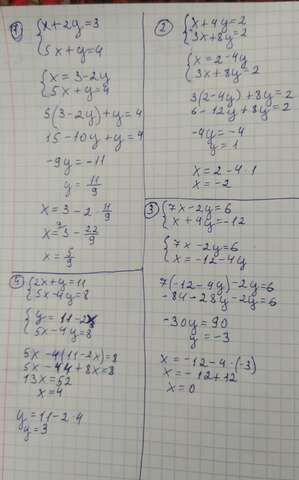 1) { x + 2y = 3
5x + y = 4
{ x = 3 - 2y
5x + y = 4
5(3 - 2y) + y = 4
15 - 10y + y = 4
-9y = -11
y = 11/9
x = 3 - 2 · 11/9
x = 3 - 22/9
x = 5/9
2) { x + 4y = 2
3x + 8y = 2
{ x = 2 - 4y
3x + 8y = 2
3(2 - 4y) + 8y = 2
6 - 12y + 8y = 2
-4y = -4
y = 1
x = 2 - 4 · 1
x = -2
3) { 7x - 2y = 6
x + 4y = -12
{ 7x - 2y = 6
x = -12 - 4y
7(-12 - 4y) - 2y = 6
-84 - 28y - 2y = 6
-30y = 90
y = -3
x = -12 - 4 · (-3)
x = -12 + 12
x = 0
5) { 2x + y = 11
5x - 4y = 8
{ y = 11 - 2x
5x - 4y = 8
5x - 4(11 - 2x) = 8
5x - 44 + 8x = 8
13x = 52
x = 4
y = 11 - 2 · 4
y = 3